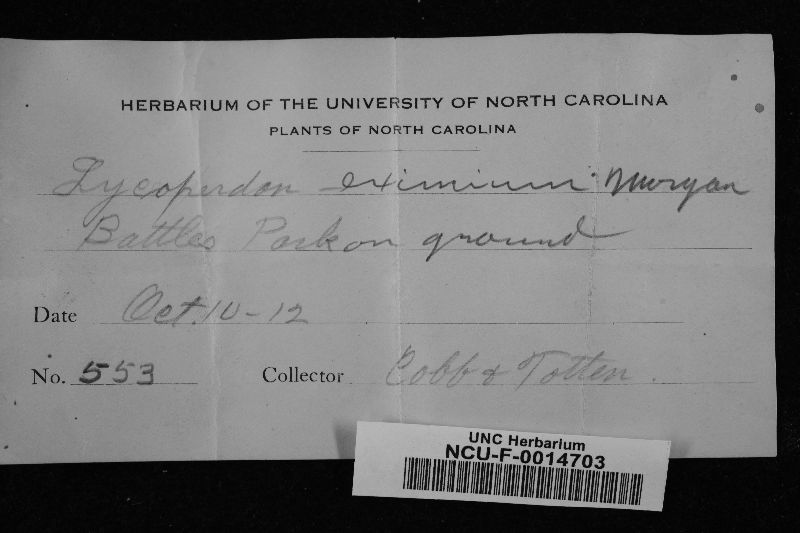 HERBARIUM OF THE UNIVERSITY OF NORTH CAROLINA
PLANTS OF NORTH CAROLINA
Lycoperdon eximium Morgan
Battles Park on ground
Date Oct. 10-12
No. 553 Collector Cobb & Totten.
UNC Herbarium
NCU-F-0014703